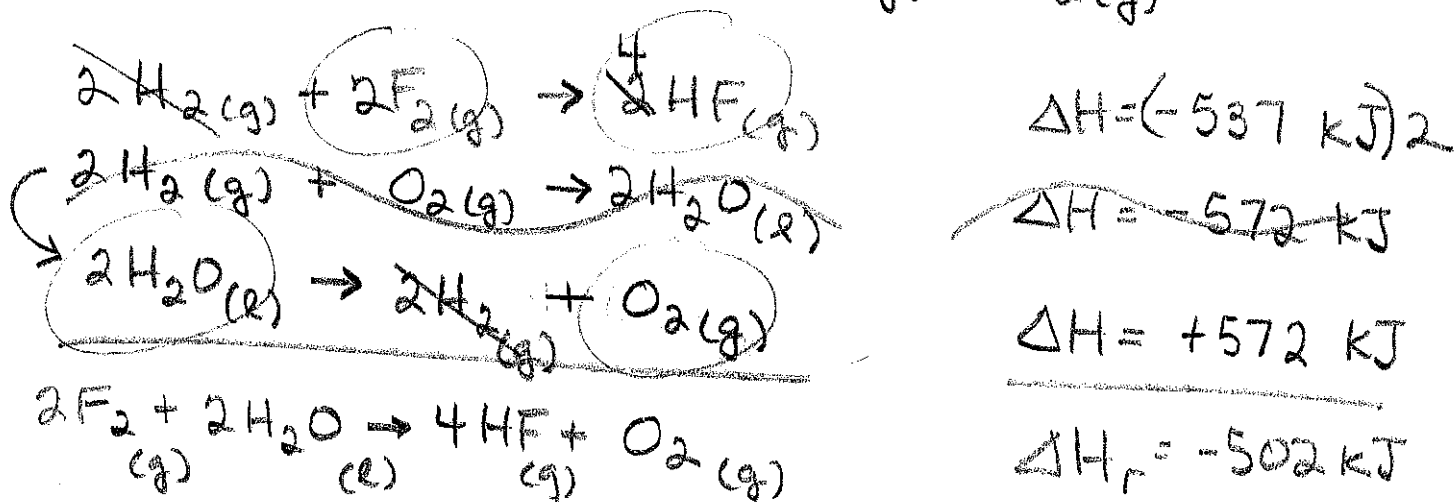 2H₂(g) + 2F₂(g) → 4 2HF(g) ΔH=(-537 kJ)2
2H₂(g) + O₂(g) → 2H₂O(l) ΔH = -572 kJ
2H₂O(l) → 2H₂(g) + O₂(g) ΔH = +572 kJ
2F₂(g) + 2H₂O(l) → 4HF(g) + O₂(g) ΔHᵣ = -502 kJ